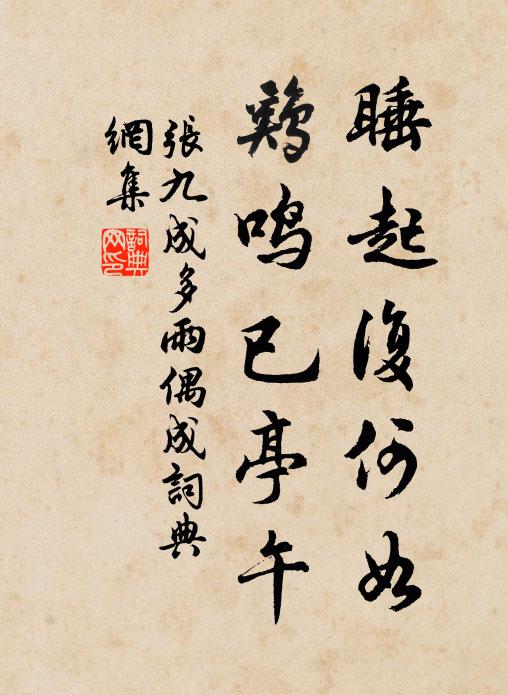 睡起復何如
鷄鳴已亭午
張九成多雨偶成詞典
網集
詞典
网印